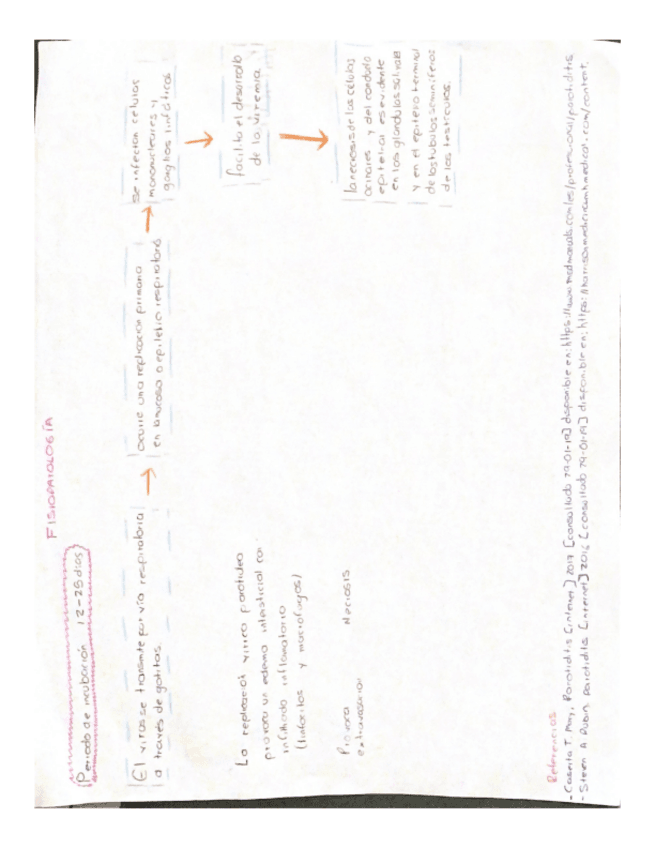 FISIOPATOLOGÍA
Periodo de incubación 12-25 días
El virus se transmite por vía respiratoria
a través de gotitas.
ocurre una replicación primaria
en la mucosa o epitelio respiratorio
Se infectan células
mononucleares y
ganglios linfáticos
facilita el desarrollo
de la viremia
la necrosis de las células
acinares y del conducto
epitelial es evidente
en las glándulas salivales
y en el epitelio terminal
de los túbulos seminíferos
de los testículos.
La replicación vírica parotídea
provoca un edema intersticial con
infiltrado inflamatorio
(linfocitos y macrófagos)
Necrosis
Referencias
- Caserta T. Mary, Parotiditis [internet] 2017 [consultado 29-01-19] disponible en: https://www.msdmanuals.com/es/professional/parotiditis
- Steven A. Rubin. parotiditis [internet] 2016 [consultado 29-01-19] disponible en: https://harrisonmedicina.mhmedical.com/content.